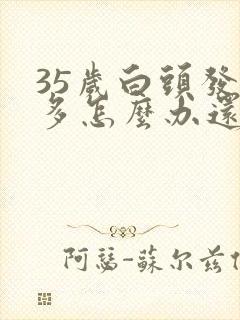 35歲白頭發
多怎麼办還
阿瑟-蘇尔兹